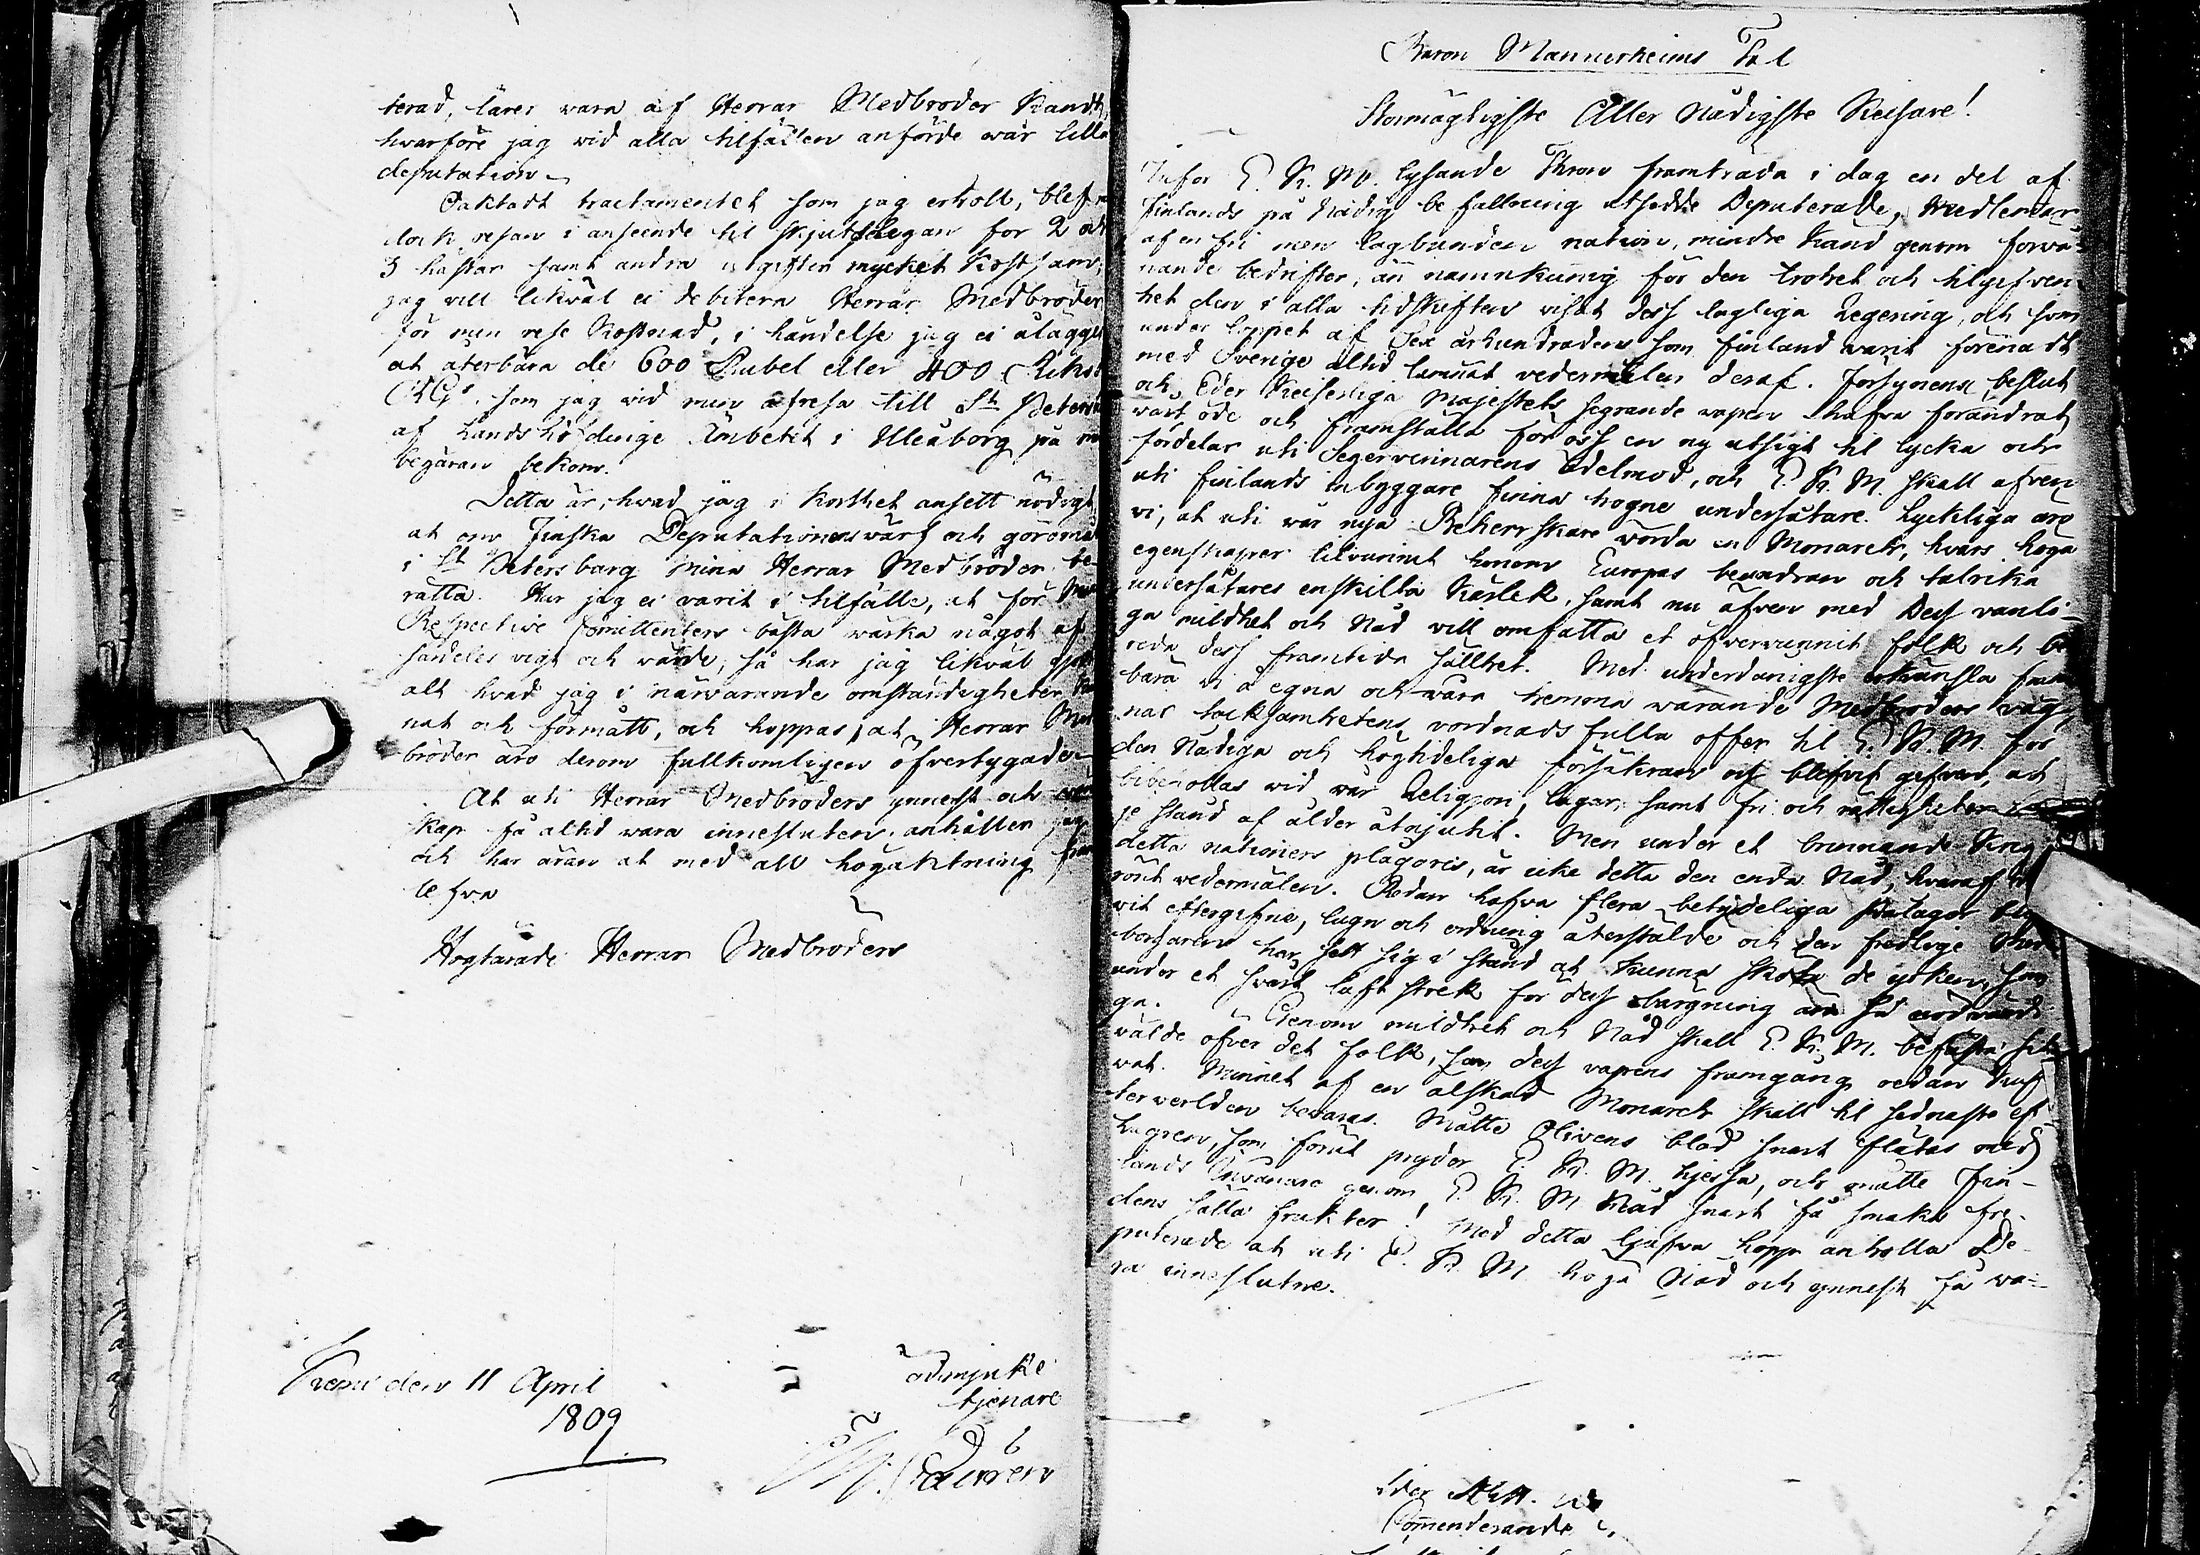 terad, lärer vara af Herrar Medbröder Kandt,
hvarföre jag vid alla tilfällen anförde vår lilla
deputation
Oaktadt tractamentet som jag erholt, blef
dock resan i anseende til skjutslegan för 2 och
3 hästar samt andra utgifter mycket Kostsam,
jag vill likväl ei debitera Herrar Medbröder
för min rese Kostnad, i händelse jag ei älägges
at återbära de 600 Rubel eller 400 Riksd
RGs. som jag vid min afresa till St Petersb
af Landshöfdinge Embetet i Uleåborg på min
begäran bekom.
Detta är, hvad jag i Korthet ansett nödigt
at om Finska Deputationens värf och göromål
i St Petersburg mina Herrar Medbröder be-
rätta. Har jag ei varit i tilfälle, at för
Respective Comittenters bästa värka något af
särdeles vigt och värde, så har jag likväl gjort
alt hvad jag i närvarande omständigheter kun
nat och förmått, och hoppas, at Herrar Med
bröder äro derom fullkomligen öfvertygade
At uti Herrar Medbröders ynnest och vän
skap få altid vara innesluten, anhåller jag
och har äran at med all högaktning fram
lefva
Högtärade Herrar Medbröders
Kemi den 11 April
1809
ödmjuke
tjenare
Lauren
Baron Mannerheims Tal
Stormägtigste Aller Nådigste Keisare!
Inför E. K. M. lysande Thron framträda i dag en del af
Finlands på Nådig befallning utsedde Deputerade, Medlemar
af en fri men lagbunden nation, mindre känd genom förvå-
nande bedrifter, än namnkunnig för den trohet och tilgifven-
het den i alla tidskiften visat dess lagliga Regering, och som
under loppet af Sex århundraden som Finland varit förenadt
med Sverige altid lemnat vedermälen deraf. Försynens beslut
och Eder Keiserliga Majestets segrande vapen hafva förändrat
vårt öde och framställa för oss en ny utsigt til lycka och
fördelar uti Segervinnarens ädelmod, och E. K. M. skall äfven
uti Finlands inbyggare finna trogne undersåtare. Lyckliga äro
vi, at uti vår nya Beherrskare vörda en Monarch, hvars höga
egenskaper tilvunnit honom Europas beundran och talrika
undersåtares enskilta Kärlek, samt nu äfven med Dess vanli-
ga mildhet och Nåd vill omfatta et öfvervunnit folk och be
reda dess framtida sällhet. Med underdånigste erkänsla fram
bära vi å egna och våra hemma varande Medbröders väg
nar tacksamhetens vördnadsfulla offer til E. K. M. för
den Nådiga och högtideliga försäkran oss blifvit gifven, at
bibehollas vid vår Religion, lagar, samt fri och rättigheter
je stånd af ålder åtnjutit. Men under et brinnande Krig
detta nationers plågoris, är icke detta den enda Nåd, hvaraf vi
rönt vedermälen. Redan hafva flera betydeliga pålagor bli
vit eftergifne, lugn och ordning återstälde och den fredlige Med
borgaren har sett sig i stånd at kunna sköta de yrken, som
under et svårt luft strek för dess bärgning äro så nödvändi
ga. Genom mildhet och Nåd skall E. K. M. befästa sit
välde öfver det folk, som dess vapens framgång redan kuf
vat. Minnet af en älskad Monarch skall til sednaste ef-
terverlden bevaras. Måtte Olivens blad snart flätas med
lagren, som förut pryder E. K. M. hjessa, och måtte Fin-
lands Invånare genom E. K. M. Nåd snart få smaka fre-
dens sälla frukter! Med detta ljufva hopp anholla De-
puterade at uti E. K. M. höga Nåd och ynnest få va-
ra inneslutne.
Commenderande